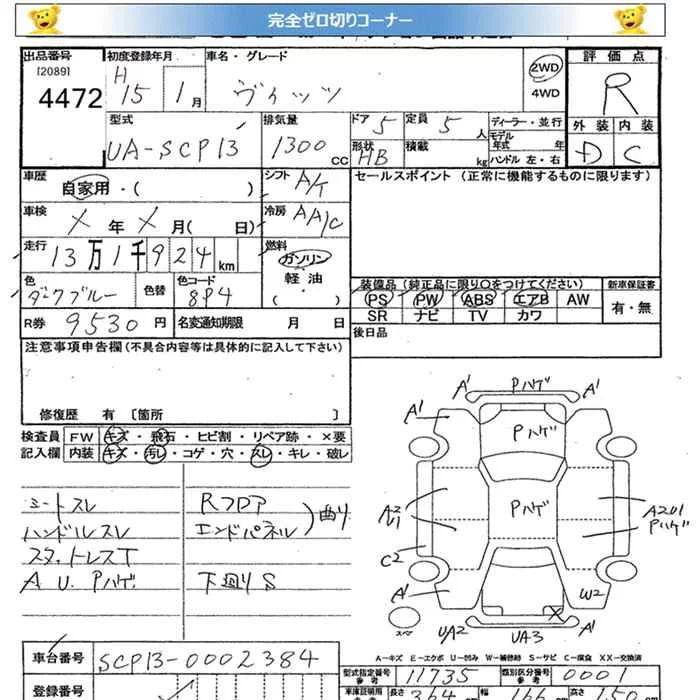 完全ゼロ切りコーナー
出品番号 初度登録年月 車名・グレード 2WD 評価点
[2089] H 15年 1月 ヴィッツ 4WD R
4472
型式 排気量 ドア 5 定員 5人 ディーラー・並行 外装 内装
UA-SCP13 1300cc 形状 HB 積載 kg モデル年式 年 D C
ハンドル 左・右
車歴 自家用・( ) シフト A/T セールスポイント (正常に機能するものに限ります)
車検 X年X月( 日) 冷房 AA/C
走行 13万1千924km 燃料 ガソリン
軽油・( )
色 ダークブルー 色替 色コード 8P4 装備品 (純正品に限り○をつけてください) 新車保証書
PS PW ABS エアB AW 有・無
R券 9530円 名変通知期限 月 日 SR ナビ TV カワ
注意事項申告欄 (不具合内容等は具体的に記入して下さい) 後日品
修復歴 有 〔箇所 〕
検査員 FW キズ・飛石・ヒビ割・リペア跡・×要
記入欄 内装 キズ・汚レ・コゲ・穴・スレ・キレ・破レ
シートスレ Rフロア
ハンドルスレ エンドパネル )曲り
スタットレスT
A U. Pハゲ 下廻りS
A' Pハゲ A'
A' Pハゲ A'
A2 U1 Pハゲ A2U1 Pハゲ
C2
A' W2
X
スペア UA2 UA3 A'
A-キズ E-エクボ U-凹み W-補修跡 S-サビ C-腐食 XX-交換済
車台番号 SCP13-0002384 型式指定番号 11735 類別区分番号 0001
登録番号 長さ 364 幅 166 高さ 150